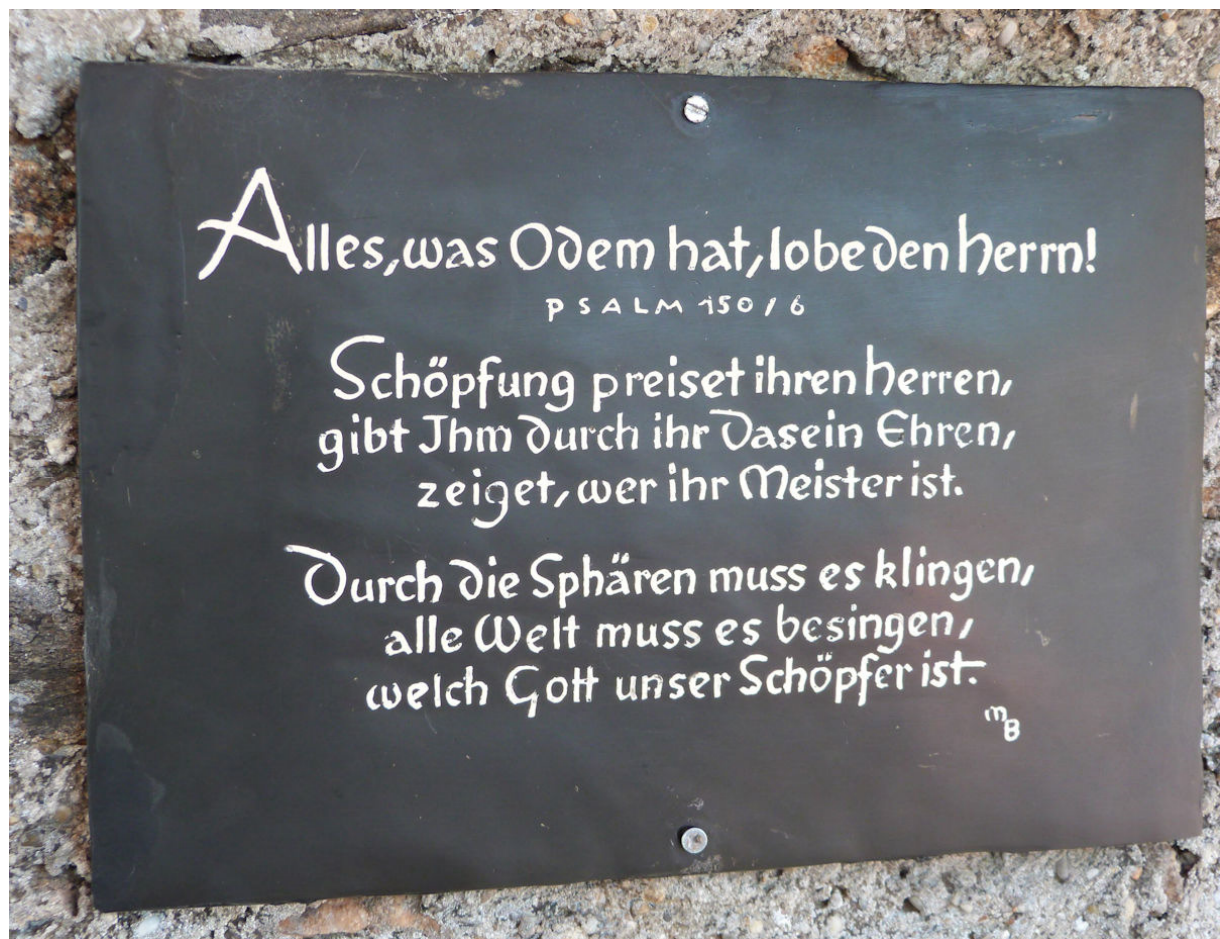 Alles, was Odem hat, lobe den Herrn!
PSALM 150/6
Schöpfung preiset ihren Herren,
gibt Ihm durch ihr Dasein Ehren,
zeiget, wer ihr Meister ist.
Durch die Sphären muss es klingen,
alle Welt muss es besingen,
welch Gott unser Schöpfer ist.
MB